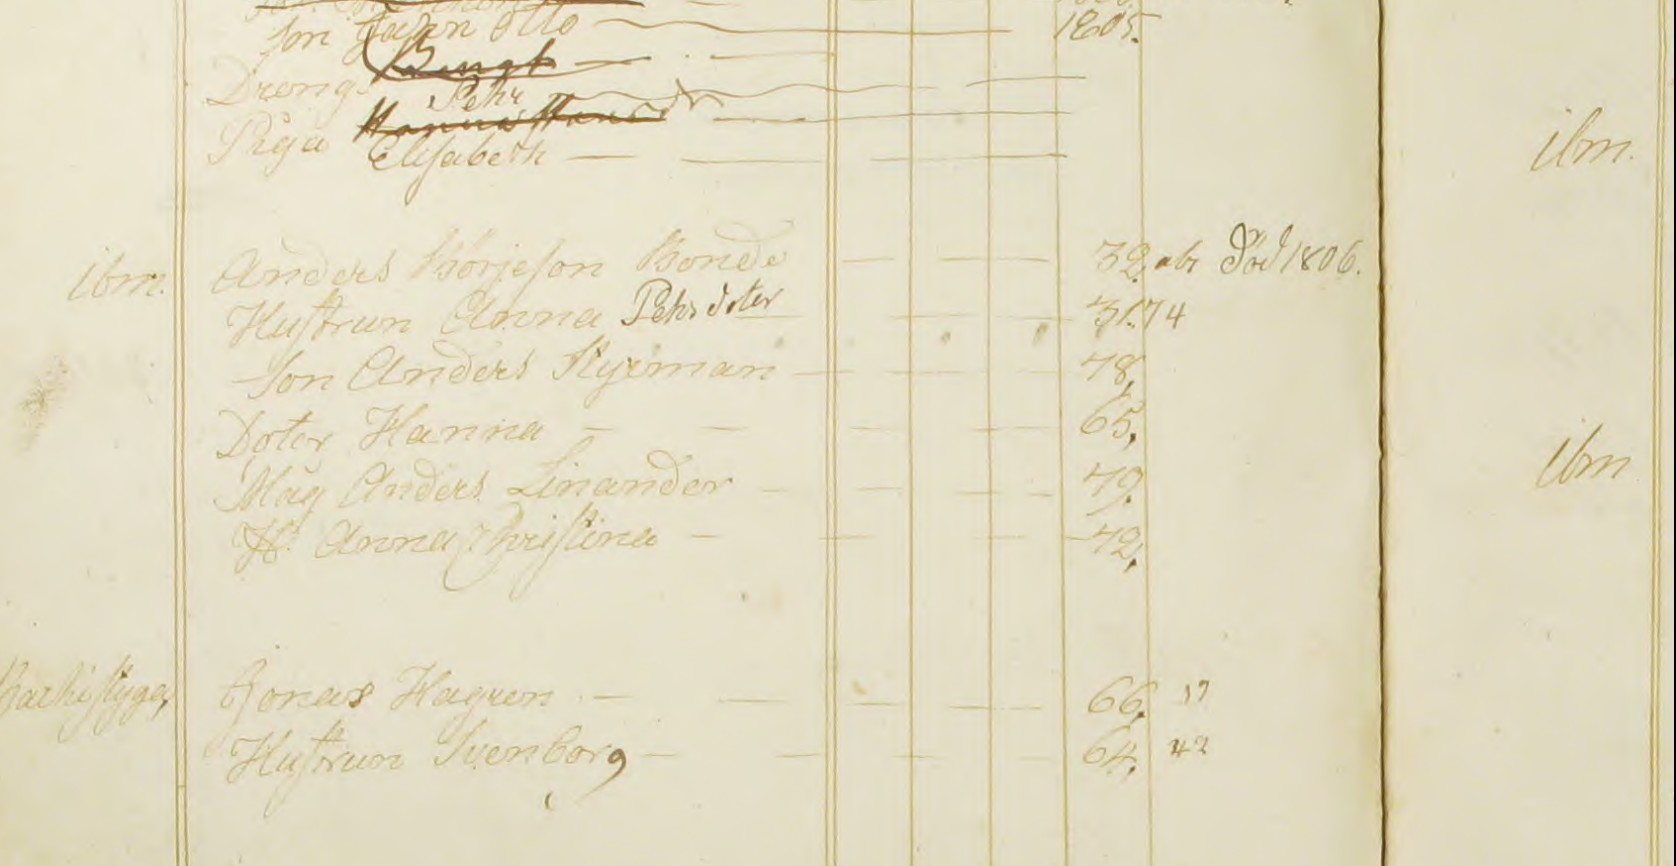 Son Johan Otto 1805.
Bengt
Dreng Pehr
Piga Hanna
Elisabeth
ibm.
ibm. Anders Börjeson Bonde 32, abr Död 1806.
Hustrun Anna Pehrs doter 31. 74
Son Anders Styrman 78,
Doter Hanna 65,
Måg Anders Linander 79.
H. Anna Christina 72,
ibm
Jonas Hagren 66, 37
Hustrun Svenborg 64, 42